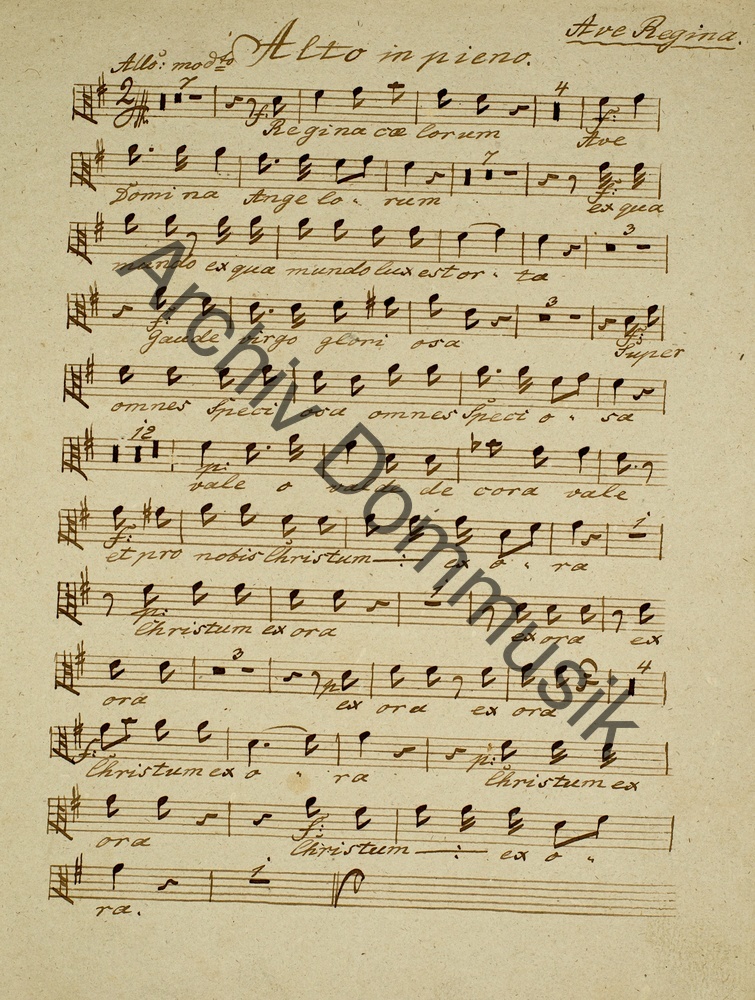 Ave Regina.
Alto in pieno.
Allo: modto
7 4
f:
Regina cœ lorum Ave
7
f:
Domi na Ange lo " rum ex qua
3
mundo ex qua mundo lux est or " ta
3
f: f:
Gaude virgo glori osa Super
omnes Speci osa omnes Speci o " sa
12
p:
vale o vale de cora vale
1
f:
et pro nobis Christum —:— ex o " ra
1
p:
Christum ex ora ex ora ex
3 4
p
ora ex ora ex ora
f: p:
Christum ex o " ra Christum ex
f:
ora Christum —:— ex o "
1
ra.
Archiv Dommusik